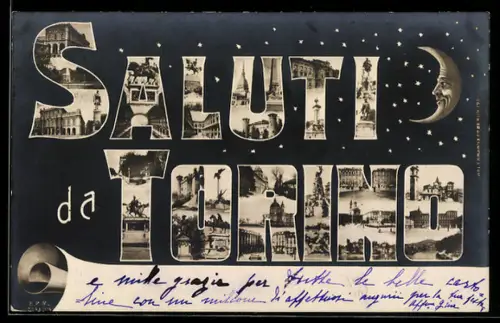 SALUTI
da
TORINO
e mille grazie per tutte le belle carto
line con un milione d'affettuosi auguri per la sua festa